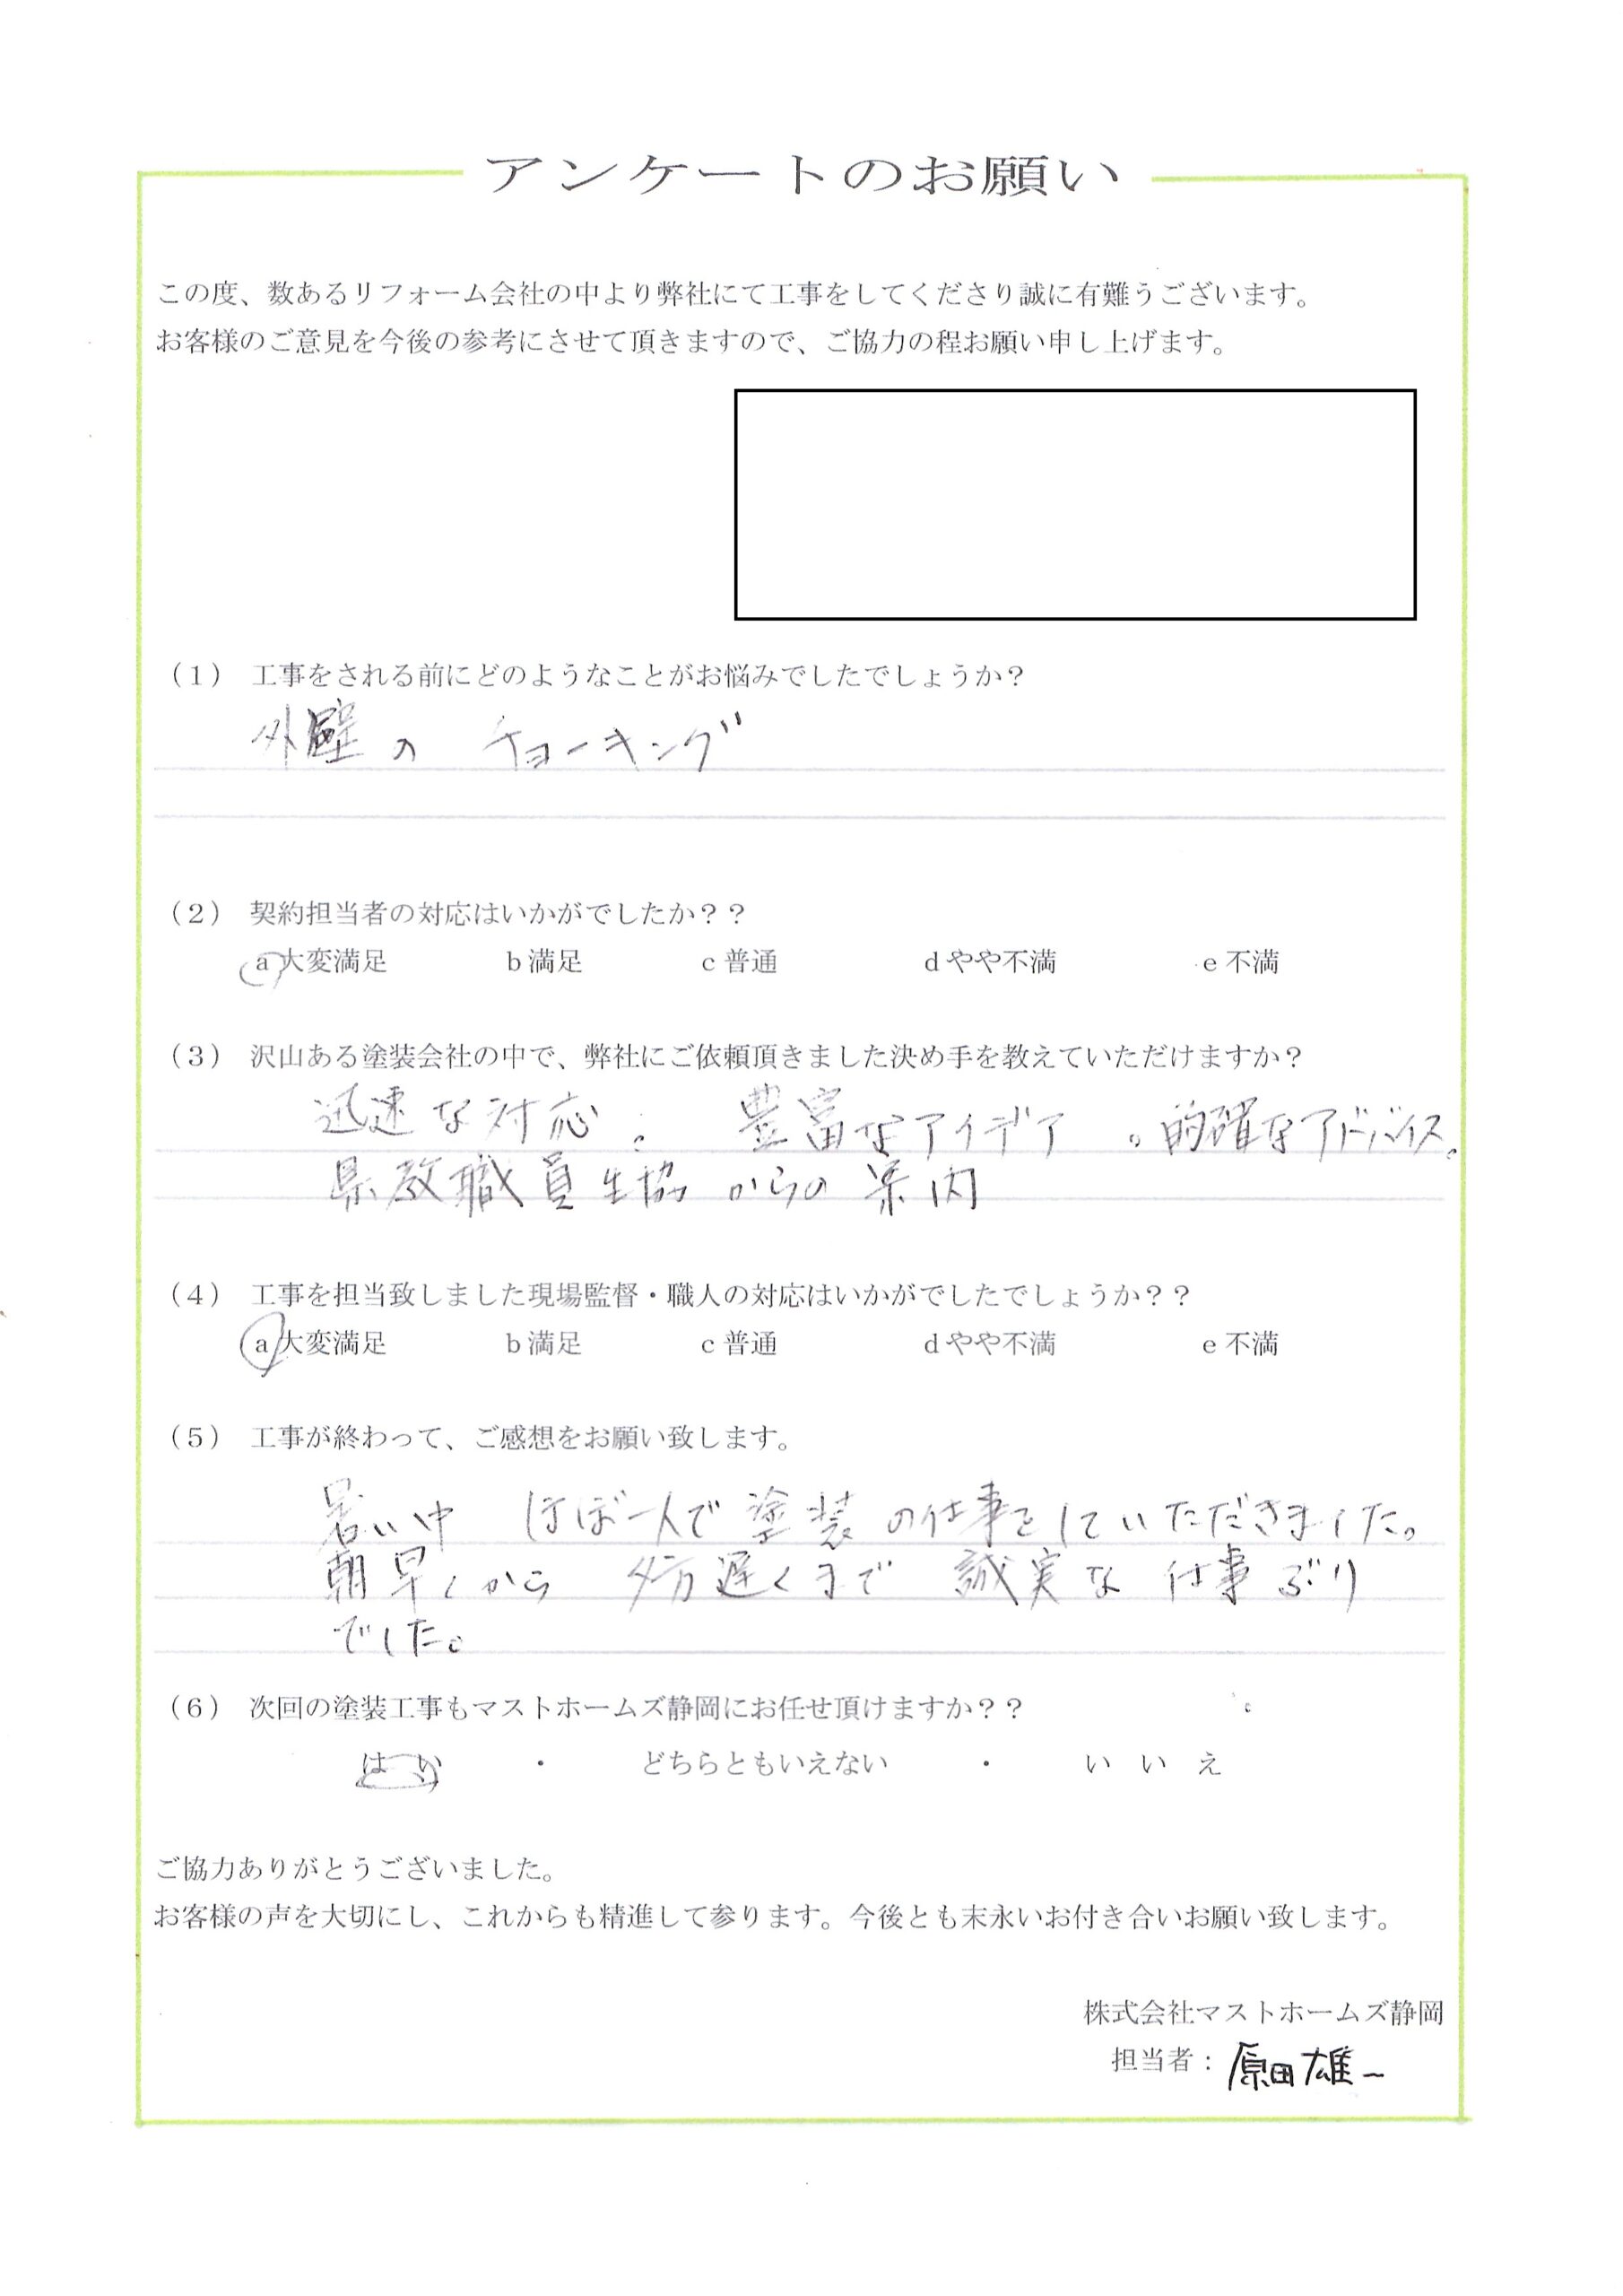 アンケートのお願い
この度、数あるリフォーム会社の中より弊社にて工事をしてくださり誠に有難うございます。
お客様のご意見を今後の参考にさせて頂きますので、ご協力の程お願い申し上げます。
（1） 工事をされる前にどのようなことがお悩みでしたでしょうか？
外壁の チョーキング
（2） 契約担当者の対応はいかがでしたか？？
a 大変満足 b 満足 c 普通 d やや不満 e 不満
（3） 沢山ある塗装会社の中で、弊社にご依頼頂きました決め手を教えていただけますか？
迅速な対応。 豊富なアイデア 。的確なアドバイス。
県教職員生協 からの 案内
（4） 工事を担当致しました現場監督・職人の対応はいかがでしたでしょうか？？
a 大変満足 b 満足 c 普通 d やや不満 e 不満
（5） 工事が終わって、ご感想をお願い致します。
暑い中 ほぼ一人で 塗装 の仕事をしていただきました。
朝早くから 夕方遅くまで 誠実な 仕事ぶり
でした。
（6） 次回の塗装工事もマストホームズ静岡にお任せ頂けますか？？
はい ・ どちらともいえない ・ いいえ
ご協力ありがとうございました。
お客様の声を大切にし、これからも精進して参ります。今後とも末永いお付き合いお願い致します。
株式会社マストホームズ静岡
担当者：原田雄一